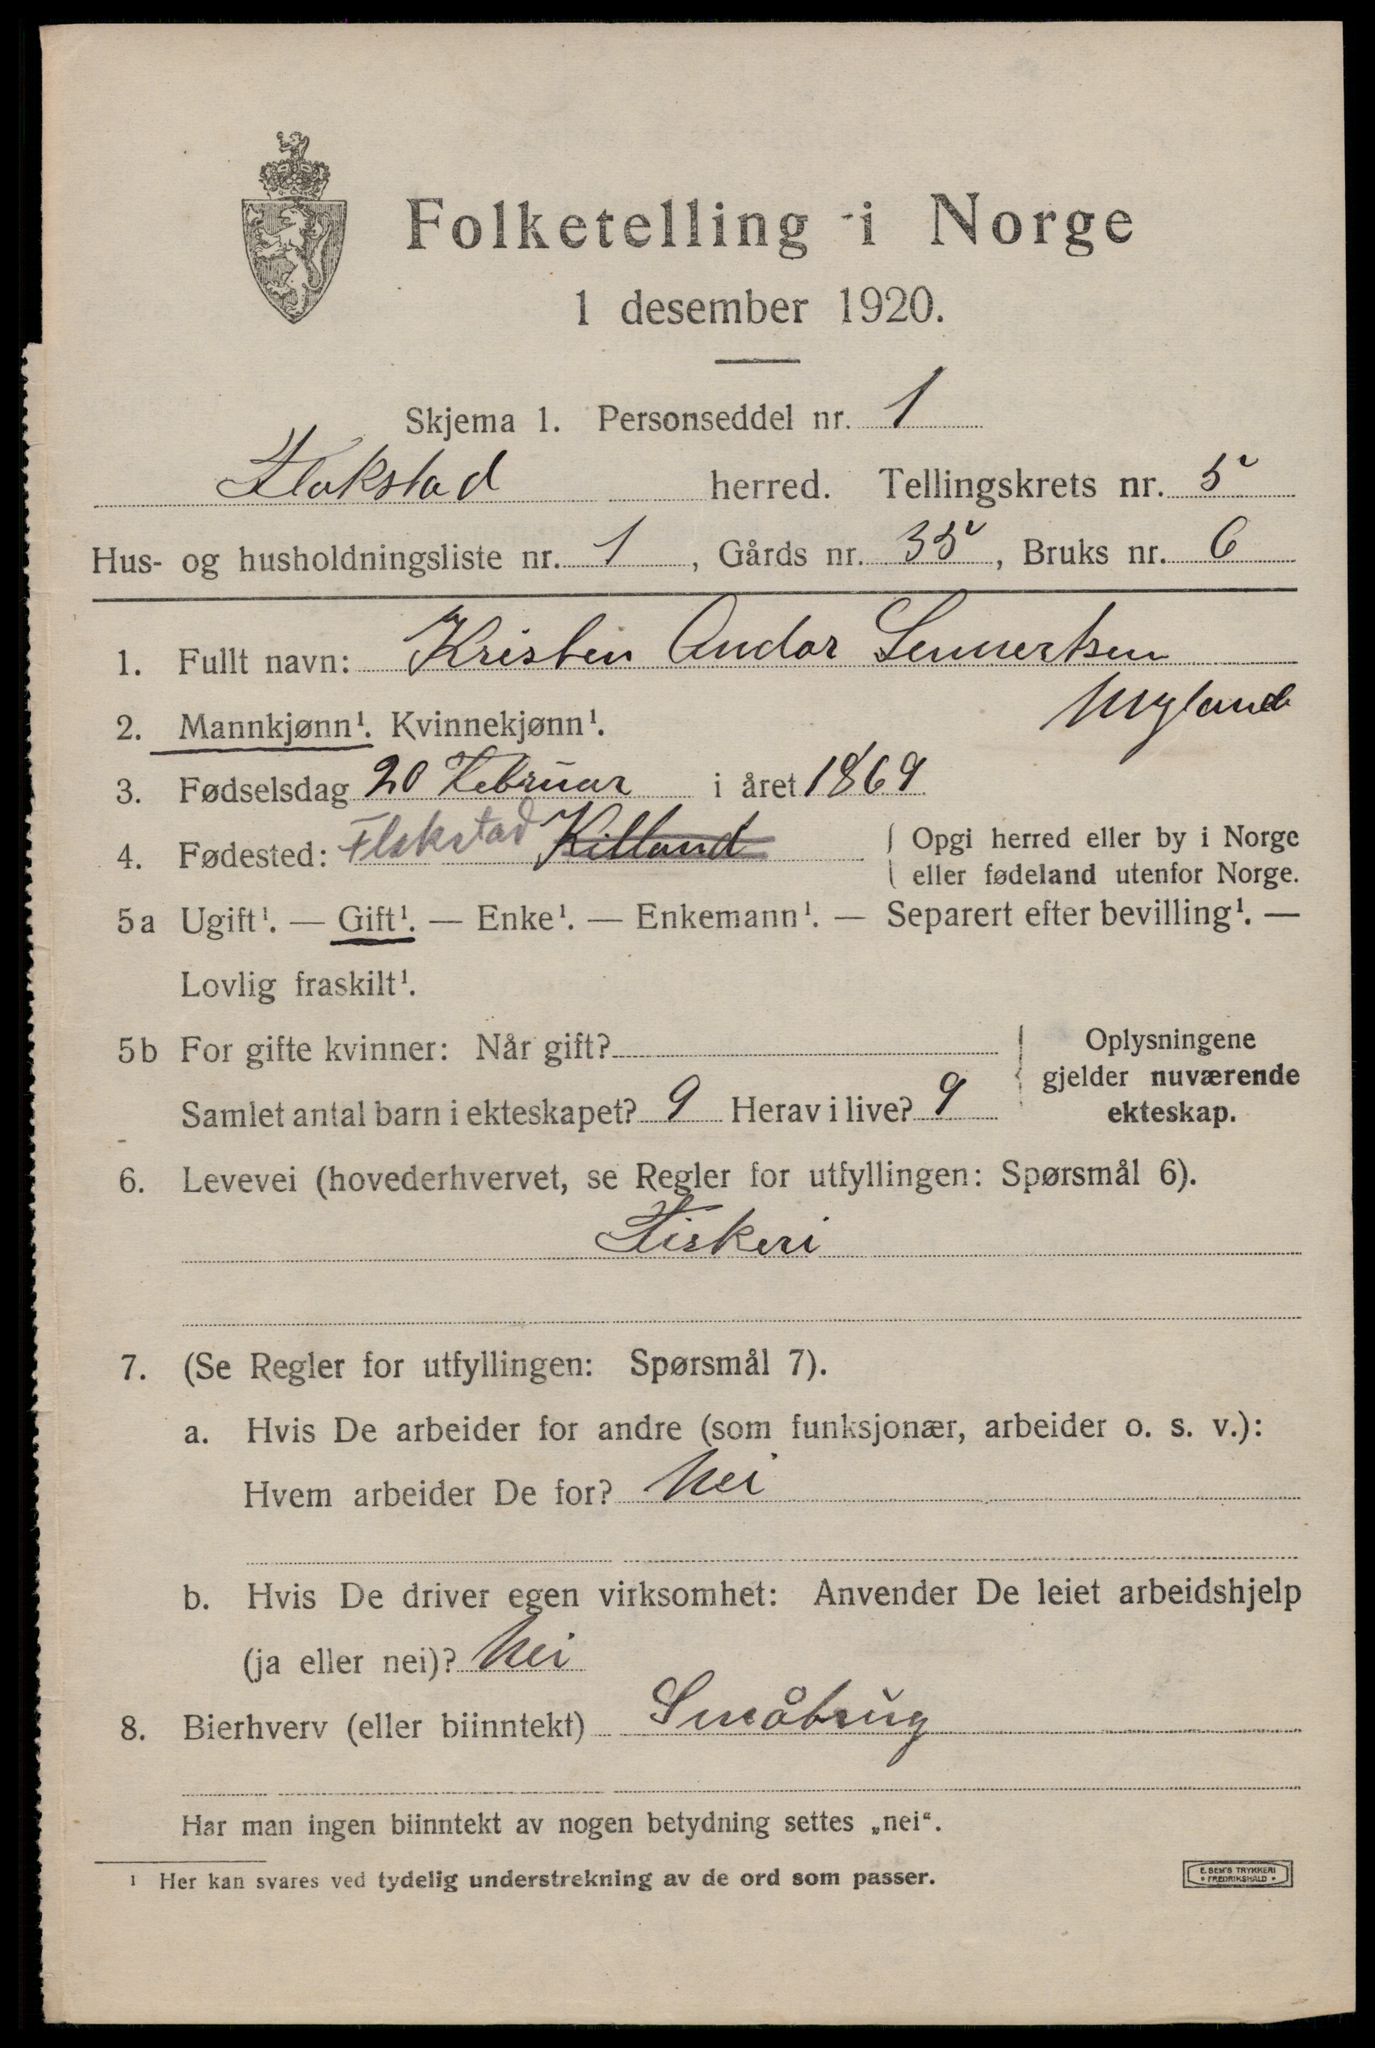 Folketelling i Norge
1 desember 1920.
Skjema 1. Personseddel nr. 1
Flakstad herred. Tellingskrets nr. 5
Hus- og husholdningsliste nr. 1, Gårds nr. 35, Bruks nr. 6
1. Fullt navn: Kristen Andor Lennertsen
Nyland
2. Mannkjønn¹. Kvinnekjønn¹.
3. Fødselsdag 20 Februar i året 1869
4. Fødested: Flakstad Killand { Opgi herred eller by i Norge
eller fødeland utenfor Norge.
5a Ugift¹. — Gift¹. — Enke¹. — Enkemann¹. — Separert efter bevilling¹. —
Lovlig fraskilt¹.
5b For gifte kvinner: Når gift?
Samlet antal barn i ekteskapet? 9 Herav i live? 9
Oplysningene
gjelder nuværende
ekteskap.
6. Levevei (hovederhvervet, se Regler for utfyllingen: Spørsmål 6).
Fiskeri
7. (Se Regler for utfyllingen: Spørsmål 7).
a. Hvis De arbeider for andre (som funksjonær, arbeider o. s. v.):
Hvem arbeider De for? Nei
b. Hvis De driver egen virksomhet: Anvender De leiet arbeidshjelp
(ja eller nei)? Nei
8. Bierhverv (eller biinntekt) Småbrug
Har man ingen biinntekt av nogen betydning settes „nei“.
¹ Her kan svares ved tydelig understrekning av de ord som passer.
E. SEM'S TRYKKERI
• FREDRIKSHALD •